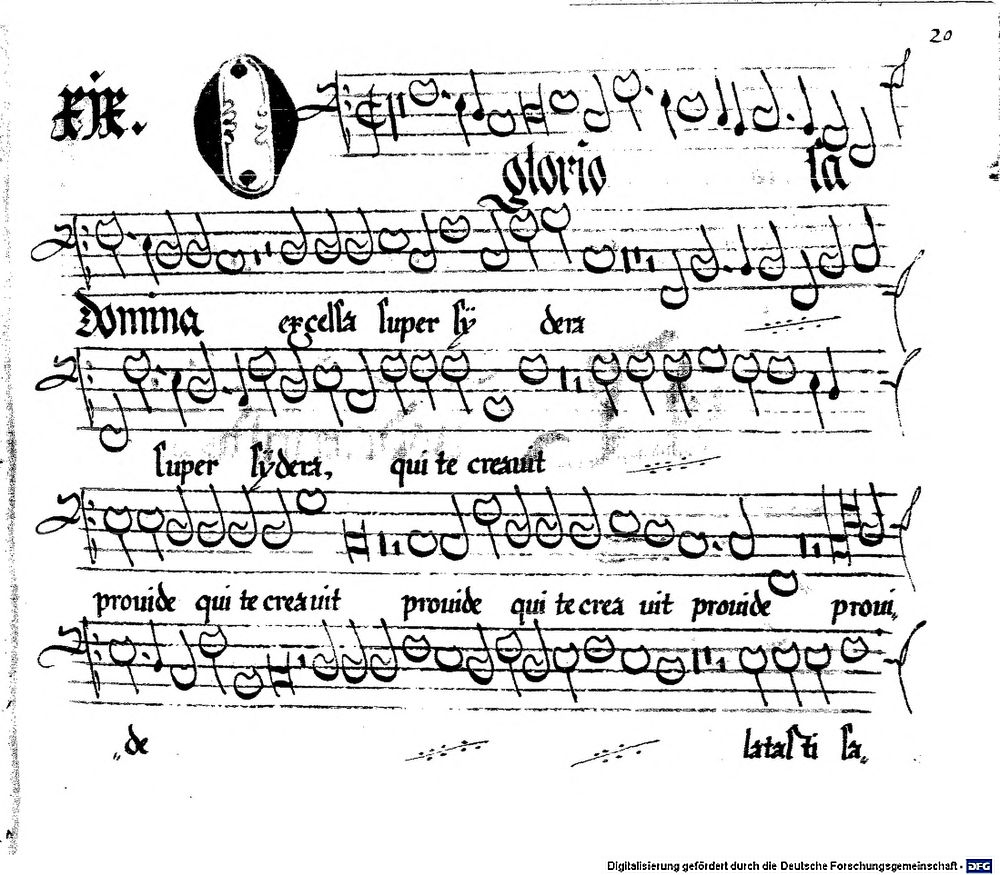 20
xix.
O glorio sa
Domina excelsa super sÿ dera
super sÿdera, qui te creauit
prouide qui te creauit prouide qui te crea uit prouide proui„
„de latasti sa„
Digitalisierung gefördert durch die Deutsche Forschungsgemeinschaft - DFG